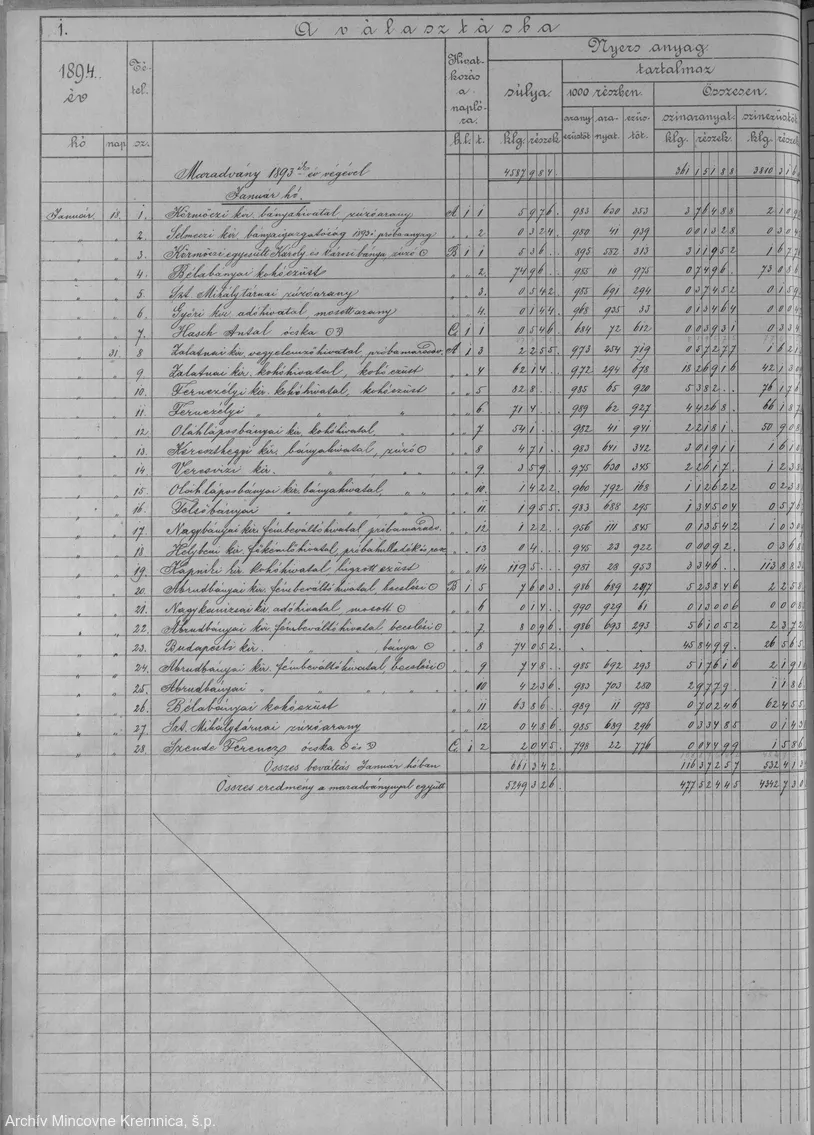 1. A választásba
Nyers anyag.
1894. Té- Hivat- tartalmaz
év tel. kozás súlya. 1000 részben. Összesen.
a arany ara- ezüs- színaranyat. színezüstöt
napló- ezüstöt nyat. töt.
ra.
hó nap sz. kl. t. klg. részek klg. részek. klg. részek
Maradvány 1893 ik év végével 4587 984 361 15188 3810
Január hó.
Január. 18. 1. Körmöczi kir. bányahivatal zúzóarany A 1 1 5 976 983 630 353 3 76488
" " 2. Selmeczi kir. bányaigazgatóság 1893 i próbaanyag " " 2 0 324 980 41 939 0 01328
" " 3. Körmöczi egyesült Károly és városi bánya zúzó B 1 1 5 36 895 582 313 3 11952
" " 4. Bélabányai kohóezüst " " 2. 74 96 985 10 975 0 7496
" " 5. Szt. Mihálytárnai zúzóarany " " 3. 0 542 985 691 294 0 37452
" " 6. Győri kir. adóhivatal, mosott arany " " 4. 0 144 968 935 33 0 13464
" " 7. Hasch Antal ócska C. 1 1 0 546 684 72 612 0 03931
" 31. 8 Zalatnai kir. vegyelemzőhivatal, próbamaradv. A 1 3 2 255 973 254 719 0 57277
" " 9 Zalatnai kir. kohóhivatal, kohóezüst " " 4 62 14 972 294 678 18 26916
" " 10. Fernezélyi kir. kohóhivatal, kohóezüst " " 5 82 8 985 65 920 5 382
" " 11. Fernezélyi " " " " " 6 71 4 989 62 927 4 4268
" " 12. Oláhláposbányai kir. kohóhivatal, " " 7 54 1 982 41 941 2 2181
" " 13. Kereszthegyi kir. bányahivatal, zúzó " " 8 4 71 983 641 342 3 01911
" " 14. Veresvizi kir. " " " " 9 3 59 975 630 345 2 2617
" " 15. Oláhláposbányai kir. bányahivatal, " " " " 10. 1 422 960 792 168 1 12622
" " 16. Felsőbányai " " " " " " 11 1 955 983 688 295 1 34504
" " 17. Nagybányai kir. fémbeváltóhivatal próbamaradv. " " 12 1 22 956 111 845 0 13542
" " 18. Helybeni kir. főkémlőhivatal, próbahulladék " " 13 0 4 945 23 922 0 0092
" " 19. Kapniki kir. kohóhivatal lúgzott ezüst " " 14 119 5 981 28 953 3 346
" " 20. Abrudbányai kir. fémbeváltóhivatal becslési B 1 5 7 603 986 689 297 5 23846
" " 21. Nagykanizsai kir. adóhivatal, mosott " " 6 0 14 990 929 61 0 13006
" " 22. Abrudbányai kir. fémbeváltóhivatal becslési " " 7 8 096 986 693 293 5 61052
" " 23. Budapesti kir. " " bánya " " 8 74 052 45 8499
" " 24. Abrudbányai kir. fémbeváltóhivatal, becslési " " 9 7 48 985 692 293 5 17616
" " 25. Abrudbányai " " " " " 10 4 236 983 703 280 2 9779
" " 26. Bélabányai kohóezüst " " 11 63 86 989 11 978 0 70246
" " 27. Szt. Mihálytárnai zúzóarany " " 12 0 486 985 689 296 0 33485
" " 28. Szende Ferencz ócska és C. 1 2 2 045 798 22 776 0 04499
Összes beváltás Január hóban 661 342 116 37257
Összes eredmény a maradvánnyal együtt 5249 326 477 52445
Archív Mincovne Kremnica, š.p.